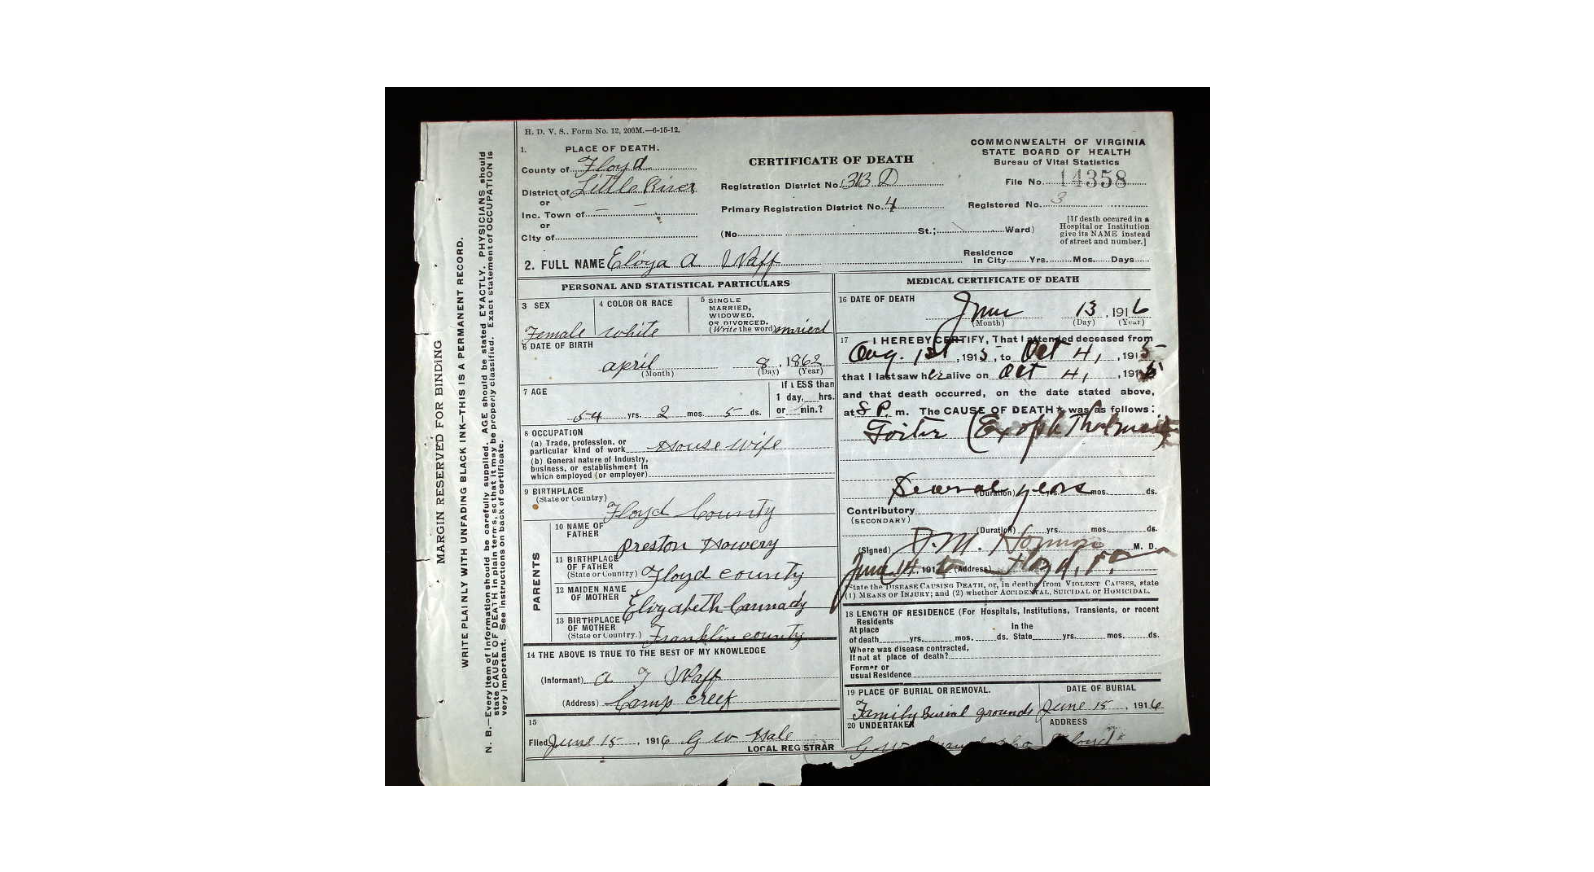 H. D. V. S., Form No. 12, 200M.—6-15-12.
MARGIN RESERVED FOR BINDING
WRITE PLAINLY WITH UNFADING BLACK INK—THIS IS A PERMANENT RECORD.
N. B.—Every item of information should be carefully supplied. AGE should be stated EXACTLY. PHYSICIANS should
state CAUSE OF DEATH in plain terms, so that it may be properly classified. Exact statement of OCCUPATION is
very important. See instructions on back of certificate.
1. PLACE OF DEATH.
County of Floyd
District of Little River
or
Inc. Town of
or
City of
CERTIFICATE OF DEATH
Registration District No. 313 D
Primary Registration District No. 4
(No. St.; Ward)
COMMONWEALTH OF VIRGINIA
STATE BOARD OF HEALTH
Bureau of Vital Statistics
File No. 14358
Registered No. 3
[If death occured in a
Hospital or Institution
give its NAME instead
of street and number.]
2. FULL NAME Eloya A Waff
Residence
In City Yrs. Mos. Days
PERSONAL AND STATISTICAL PARTICULARS
3 SEX
Female
4 COLOR OR RACE
white
5 SINGLE
MARRIED,
WIDOWED,
OR DIVORCED.
(Write the word) married
6 DATE OF BIRTH
april 8, 1862
(Month) (Day) (Year)
7 AGE
54 yrs. 2 mos. 5 ds.
If LESS than
1 day, hrs.
or min.?
8 OCCUPATION
(a) Trade, profession, or
particular kind of work House wife
(b) General nature of industry,
business, or establishment in
which employed (or employer)
9 BIRTHPLACE
(State or Country) Floyd County
PARENTS
10 NAME OF
FATHER Preston Howery
11 BIRTHPLACE
OF FATHER
(State or Country) Floyd county
12 MAIDEN NAME
OF MOTHER Elizabeth Cannady
13 BIRTHPLACE
OF MOTHER
(State or Country) Franklin county
14 THE ABOVE IS TRUE TO THE BEST OF MY KNOWLEDGE
(Informant) A T Waff
(Address) Camp Creek
15
Filed June 15, 1916 G W Hale
LOCAL REGISTRAR
MEDICAL CERTIFICATE OF DEATH
16 DATE OF DEATH
June 13, 1916
(Month) (Day) (Year)
17 I HEREBY CERTIFY, That I attended deceased from
Aug. 1st, 1915, to Oct 4, 1915
that I last saw her alive on Oct 4, 1915
and that death occurred, on the date stated above,
at 8 P. m. The CAUSE OF DEATH * was as follows:
Goiter
Several years
(Duration) yrs. mos. ds.
Contributory
(SECONDARY)
(Duration) yrs. mos. ds.
(Signed) M. D.
June 14, 191 (Address) Floyd, Va
*State the DISEASE CAUSING DEATH, or, in deaths from VIOLENT CAUSES, state
(1) MEANS OF INJURY; and (2) whether ACCIDENTAL, SUICIDAL or HOMICIDAL.
18 LENGTH OF RESIDENCE (For Hospitals, Institutions, Transients, or recent
Residents
At place In the
of death yrs. mos. ds. State yrs. mos. ds.
Where was disease contracted,
If not at place of death?
Former or
usual Residence
19 PLACE OF BURIAL OR REMOVAL.
Family Burial grounds
DATE OF BURIAL
June 15, 1916
20 UNDERTAKER
ADDRESS